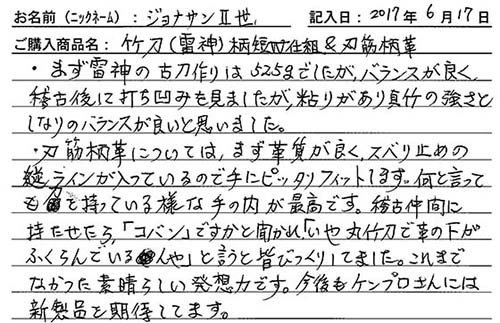 お名前(ニックネーム):ジョナサンII世, 記入日:2017年6月17日
ご購入商品名:竹刀(雷神)柄短 仕組&刃筋柄革
・まず雷神の古刀作りは525gでしたが、バランスが良く、
稽古後に打ち凹みを見ましたが、粘りがあり真竹の強さと
しなりのバランスが良いと思いました。
・刃筋柄革については、まず革質が良く、スベリ止めの
縦ラインが入っているので手にピッタリフィットしてます。何と言って
も を持っている様な手の内が最高です。稽古仲間に
持たせたら、「コバン」ですかと聞かれ、「いや丸竹刀で革の下が
ふくらんでいる んや」と言うと皆びっくりしてました。これまで
なかった素晴らしい発想力です。今後もケンプロさんには
新製品を期待してます。